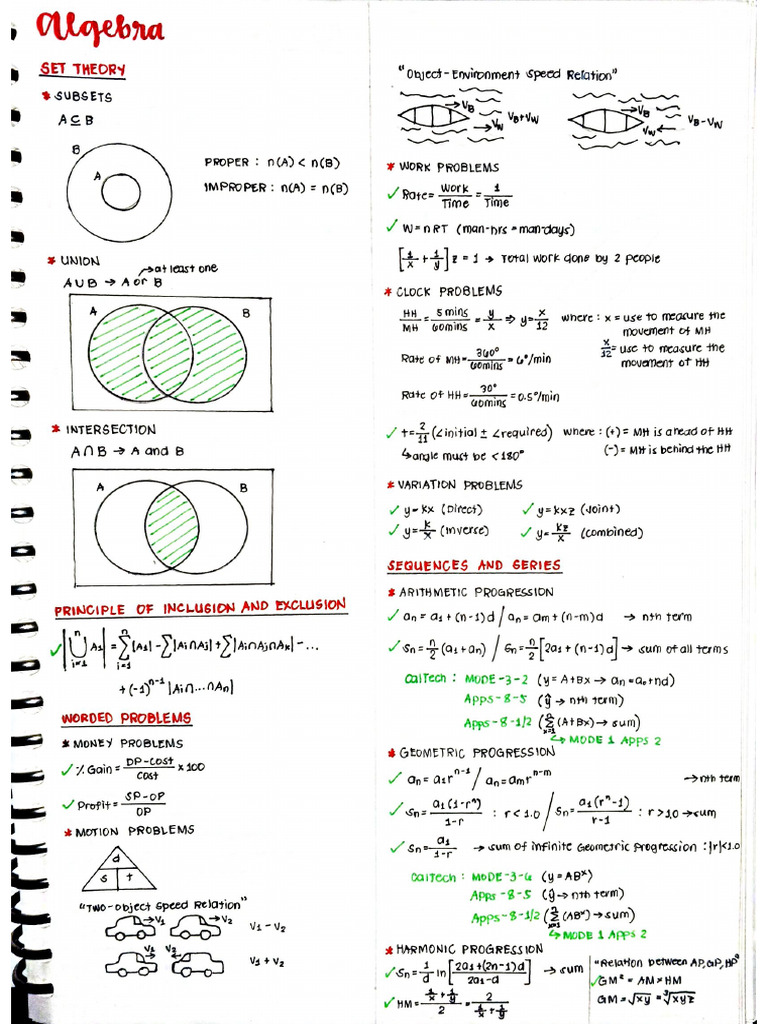 Algebra
SET THEORY
* SUBSETS
A ⊆ B
B
A
PROPER : n(A) < n(B)
IMPROPER : n(A) = n(B)
* UNION
at least one
A ∪ B → A or B
A B
* INTERSECTION
A ∩ B → A and B
A B
PRINCIPLE OF INCLUSION AND EXCLUSION
✓ |⋃ᵢ₌₁ⁿ A₁| = ∑ᵢ₌₁ⁿ |A₁| - ∑|Ai∩Aj| + ∑|Ai∩Aj∩Ak| - ...
+ (-1)ⁿ⁻¹ |Ai∩...∩An|
WORDED PROBLEMS
* MONEY PROBLEMS
✓ % Gain = (DP-Cost)/Cost × 100
✓ Profit = (SP-OP)/OP
* MOTION PROBLEMS
d
s t
"Two-Object Speed Relation"
V1 V2 V1 - V2
V1 V2 V1 + V2
"Object-Environment Speed Relation"
VB VW VB+VW
VB VW VB-VW
* WORK PROBLEMS
✓ Rate = Work/Time = 1/Time
✓ W = nRT (man-hrs = man-days)
[1/x + 1/y] z = 1 → Total work done by 2 people
* CLOCK PROBLEMS
HH/MH = 5 mins/60mins = y/x ⇒ y = x/12 where : x = use to measure the
movement of MH
x/12 = use to measure the
movement of HH
Rate of MH = 360°/60mins = 6°/min
Rate of HH = 30°/60mins = 0.5°/min
✓ t = 2/11 (∠initial ± ∠required) where : (+) = MH is ahead of HH
↳ angle must be < 180° (-) = MH is behind the HH
* VARIATION PROBLEMS
✓ y = kx (Direct) ✓ y = kxz (Joint)
✓ y = k/x (Inverse) ✓ y = kz/x (combined)
SEQUENCES AND SERIES
* ARITHMETIC PROGRESSION
✓ an = a1 + (n-1)d / an = am + (n-m)d → nth term
✓ Sn = n/2 (a1 + an) / Sn = n/2 [2a1 + (n-1)d] → sum of all terms
CalTech : MODE-3-2 (y = A+Bx → an = a0+nd)
Apps-8-5 (ŷ → nth term)
Apps-8-1/2 (∑ₓ₌₁ⁿ (A+Bx) → sum)
↳ MODE 1 APPS 2
* GEOMETRIC PROGRESSION
✓ an = a1rⁿ⁻¹ / an = amrⁿ⁻ᵐ → nth term
✓ Sn = a1(1-rⁿ)/(1-r) : r < 1.0 / Sn = a1(rⁿ-1)/(r-1) : r > 1.0 → sum
✓ Sn = a1/(1-r) → sum of Infinite Geometric Progression : |r| < 1.0
CalTech : MODE-3-6 (y = ABˣ)
Apps-8-5 (ŷ → nth term)
Apps-8-1/2 (∑ₓ₌₁ⁿ (ABˣ) → sum)
↳ MODE 1 APPS 2
* HARMONIC PROGRESSION
✓ Sn = 1/d ln [(2a1+(2n-1)d)/(2a1-d)] → sum
✓ HM = (1/x + 1/y)/2 = 2/(1/x + 1/y)
"Relation between AP, GP, HP"
✓ GM² = AM × HM
GM = √xy = ∛xyz